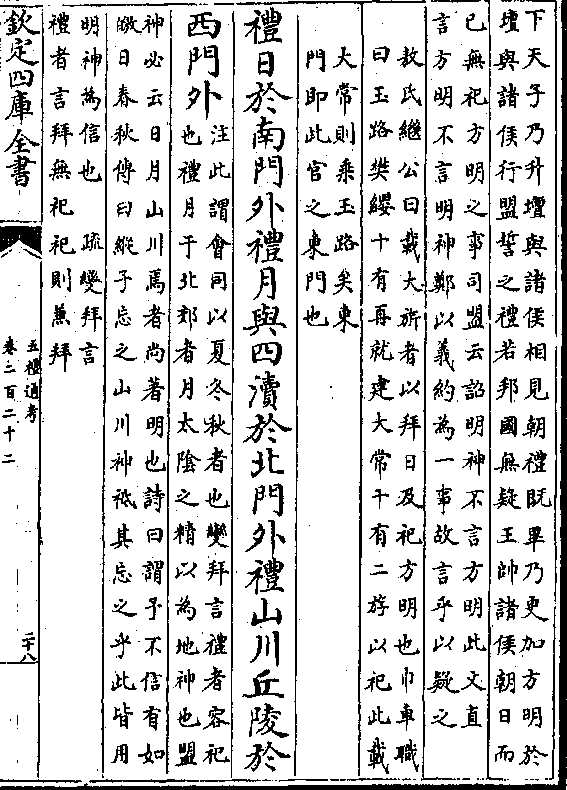 下天子乃升壇與諸侯相見朝禮既畢乃更加方明於
壇與諸侯行盟誓之禮若邦國無疑王帥諸侯朝日而
已無祀方明之事司盟云詔明神不言方明此文直
言方明不言明神鄭以義約為一事故言乎以疑之
敖氏繼公曰載大旂者以拜日及祀方明也巾車職
曰玉路樊纓十有再就建大常十有二斿以祀此載
大常則乘玉路矣東
門即此官之東門也
禮日於南門外禮月與四瀆於北門外禮山川丘陵於
西門外
注此謂會同以夏冬秋者也變拜言禮者容祀
也禮月于北郊者月太陰之精以為地神也盟
神必云日月山川焉者尚著明也詩曰謂予不信有如
皦日春秋傳曰縱子忘之山川神祗其忘之乎此皆用
明神為信也 疏變拜言
禮者言拜無祀祀則兼拜
欽定四庫全書
五禮通考
卷二百二十二
二十八